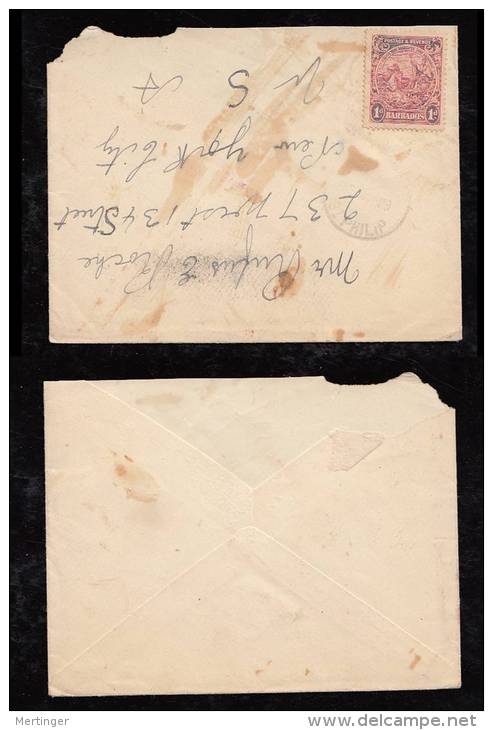 POSTAGE & REVENUE
1d BARBADOS 1d
PHILIP
Mr Rufus E Roche
237 West 134 Street
New York City
U S A
Mertinger
www.delcampe.net